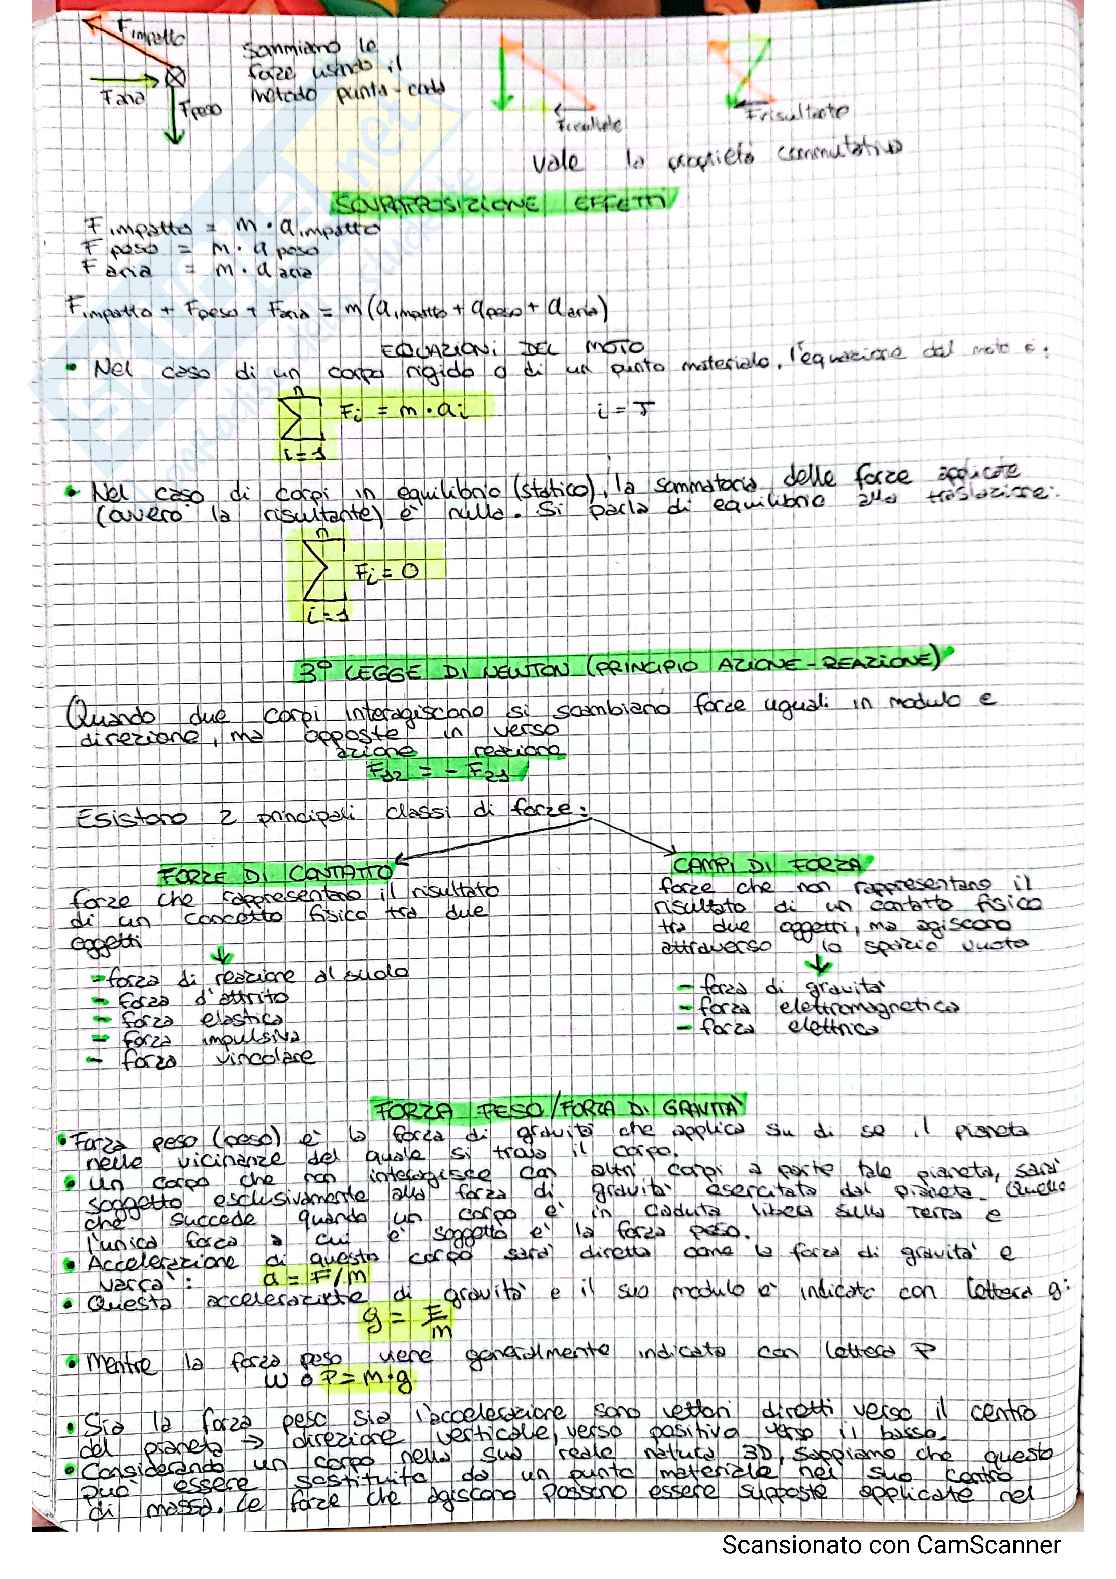 Fimpatto
Faria
Fpeso
Sommiamo le
forze usando il
metodo punta-coda
Frisultante
Frisultante
Vale la proprietà commutativa
SOVRAPPOSIZIONE EFFETTI
F impatto = m · a impatto
F peso = m · a peso
F aria = m · a aria
Fimpatto + Fpeso + Faria = m (aimpatto + apeso + aaria)
EQUAZIONI DEL MOTO
• Nel caso di un corpo rigido o di un punto materiale, l'equazione del moto è:
n
∑ Fi = m · ai
i=1
• Nel caso di corpi in equilibrio (statico), la sommatoria delle forze applicate
(ovvero la risultante) è nulla. Si parla di equilibrio alla traslazione:
n
∑ Fi = 0
i=1
3° LEGGE DI NEWTON (PRINCIPIO AZIONE-REAZIONE)
Quando due corpi interagiscono si scambiano forze uguali in modulo e
direzione, ma opposte in verso
azione reazione
F12 = - F21
Esistono 2 principali classi di forze:
FORZE DI CONTATTO
forze che rappresentano il risultato
di un concotto fisico tra due
oggetti
- forza di reazione al suolo
- forza d'attrito
- forza elastica
- forza impulsiva
- forza vincolare
CAMPI DI FORZA
forze che non rappresentano il
risultato di un contatto fisico
tra due oggetti, ma agiscono
attraverso lo spazio vuoto
- forza di gravità
- forza elettromagnetica
- forza elettrica
FORZA PESO/FORZA DI GRAVITÀ
• Forza peso (peso) è la forza di gravità che applica su di se il pianeta
nelle vicinanze del quale si trova il corpo.
• Un corpo che non interagisce con altri corpi a parte tale pianeta, sarà
soggetto esclusivamente alla forza di gravità esercitata dal pianeta. Quello
che succede quando un corpo è in caduta libera sulla terra e
l'unica forza a cui è soggetto è la forza peso.
• Accelerazione di questo corpo sarà diretta come la forza di gravità e
varrà: a = F/m
• Questa accelerazione di gravità e il suo modulo è indicato con lettera g:
g = F/m
• Mentre la forza peso viene generalmente indicata con lettera P
W o P = m·g
• Sia la forza peso sia l'accelerazione sono vettori diretti verso il centro
del pianeta → direzione verticale, verso positivo verso il basso.
• Considerando un corpo nella sua reale natura 3D, sappiamo che questo
può essere sostituito da un punto materiale nel suo centro
di massa. Le forze che agiscono possono essere supposte applicate nel
Scansionato con CamScanner